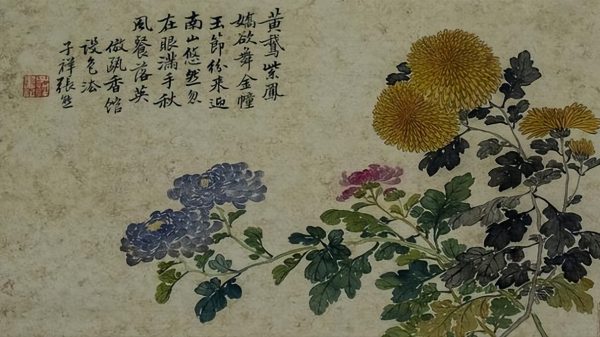 黄鵞紫鳳
嬌欲舞金幢
玉節紛来迎
南山悠然忽
在眼滿手秋
風餐落英
倣甌香館
設色法
子祥張熊